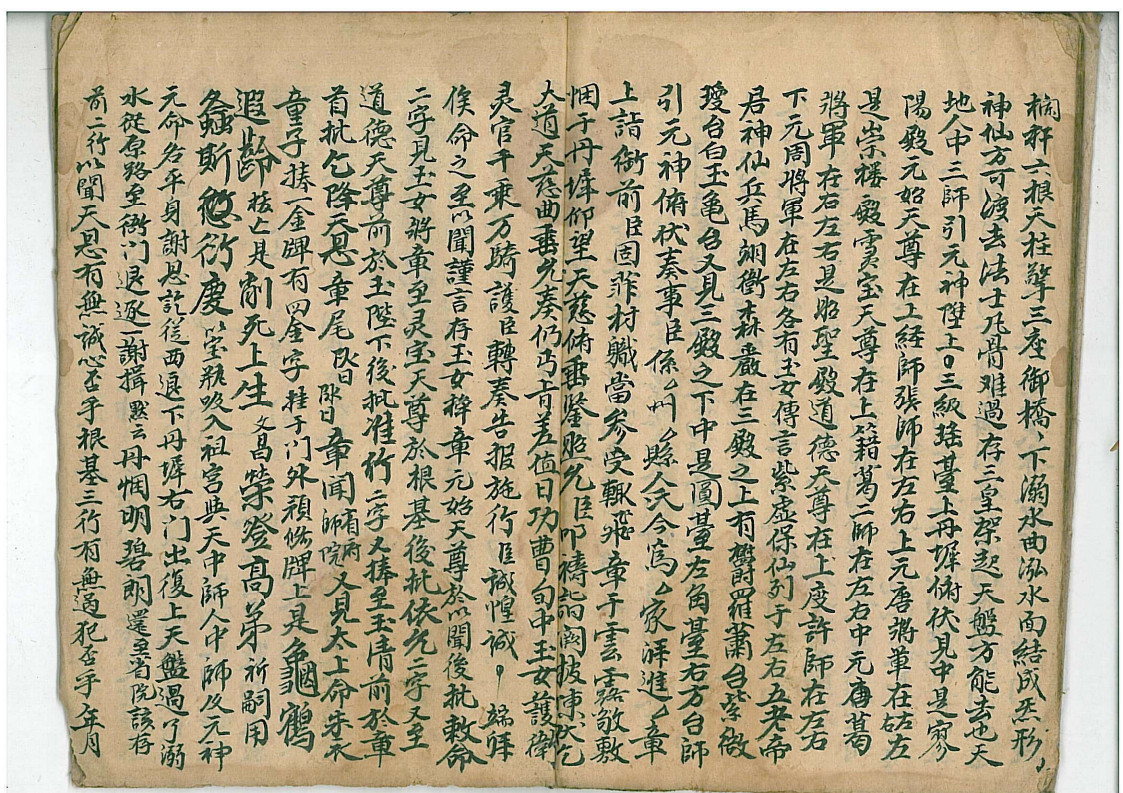 桐秤六根天柱擎三座御橋、下溺水曲泓水面結成炁形
神仙方可渡去法士凡骨难過存三皇架起天盤方能去也天
地人中三師引元神陞上〇三級瑤臺上丹墀俯伏見中是寥
陽殿元始天尊在上経師張師在左右上元唐將軍在右左
是崇楼殿灵宝天尊在上籍葛二師在左右中元唐葛
將軍在右左右是昭聖殿道德天尊在上度許師在左右
下元周將軍在左右各有玉女傳言紫虚保仙列于左右五老帝
君神仙兵馬翊衛森嚴在三殿之上有欝羅蕭台紫微
璦台白玉亀台又見三殿之下中是圓臺左角臺右方台師
引元神俯伏奏事臣係〻叫〻縣人氏今為〻家拜進〻章
上詣御前臣固非材職當参受輙飛章于雲霄敢敷
悃于丹墀仰望天慈俯垂鍳照允臣叩禱詣闕披陳伏乞
大道天慈曲垂允奏仍占上旨差值日功曹旬中玉女護衛
灵官千乘万騎護臣轉奏告报施行臣誠惶誠〻端拜
俟命之至以聞謹言存玉女捧章元始天尊於以聞後批敕命
二字見玉女將章至灵宝天尊於根基後批依允二字又至
道德天尊前於玉陛下後批准行二字又捧至玉清前於章
首批乞降天恩章尾臥日欧日章聞省府師院又見太上命朱衣
童子捧一金牌有四金字挂于門外禎條牌上是龜鶴
遐齡枯亡是削死上生文昌榮登高弟祈嗣用
螽斯愆衍慶以宝瓶吸入祖宫與天中師人中師及元神
元命名平身謝恩訖従西退下丹墀右门出復上天盤過了溺
水從原路至衙门退逐一謝揖黙云丹悃明碧朗還至省院該存
前二行以聞天恩有無誠心否乎根基三行有無過犯否乎年月